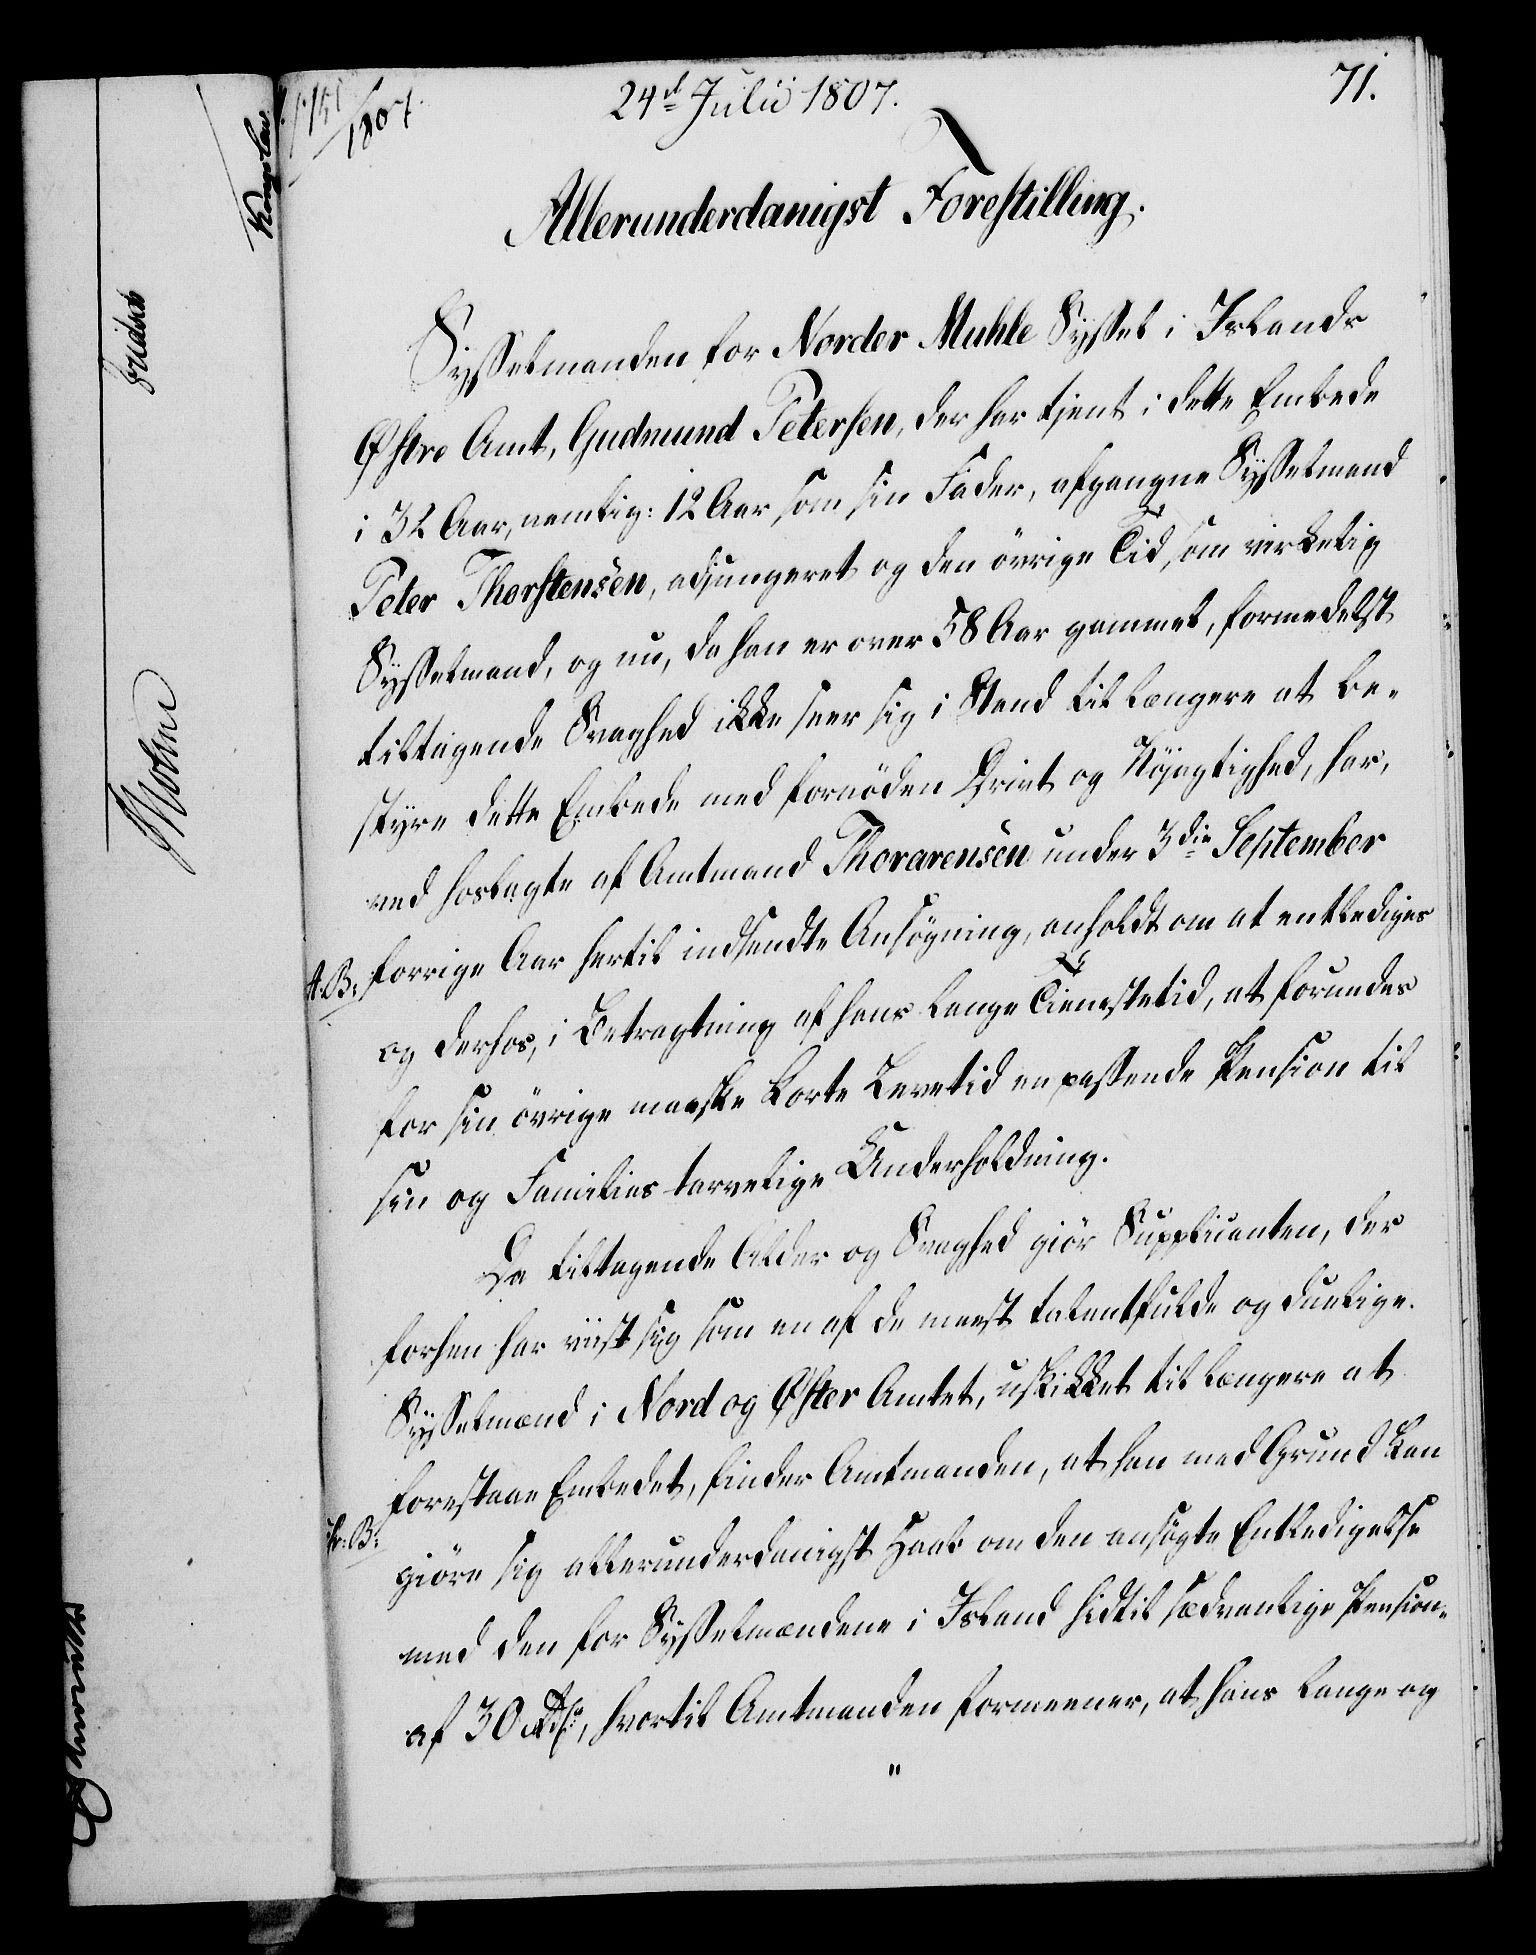 24d Julii 1807.
71.
151/1807.
Allerunderdanigst Forestilling.
Sysselmanden for Norder Muhle Syssel i Islands
Østre Amt, Gudmund Petersen, der har tjent i dette Embede
i 32 Aar, nemlig: 12 Aar som sin Fader, afgangne Sysselmand
Peter Thorstensen, adjungeret og den övrige Tid, som virkelig
Sysselmand, og nu, da han er over 58 Aar gammel, formedelst
tiltagende Svaghed ikke seer sig i Stand til længere at be-
styre dette Embede med fornöden Drivt og Nöjagtighed, har,
ved hoslagte af Amtmand Thorarensen under 3die September
A.B: forrige Aar hertil indsendte Ansögning, anholdt om at entlediges
og derhos, i Betragtning af hans lange Tienestetid, at forundes
for sin övrige maaske korte Levetid en passende Pension til
sin og Families tarvelige Underholdning.
Da tiltagende Alder og Svaghed giör Supplicanten, der
forhen har viist sig som en af de meest talentfulde og duelige
Sysselmænd i Nord og Øster Amtet, uskikket til længere at
forestaae Embedet, finder Amtmanden, at han med Grund kan
giöre sig allerunderdanigst Haab om den ansögte Entledigelse
med den for Sysselmændene i Island hidtil sædvanlige Pension
af 30 Rdr., hvortil Amtmanden formeener, at hans lange og
"